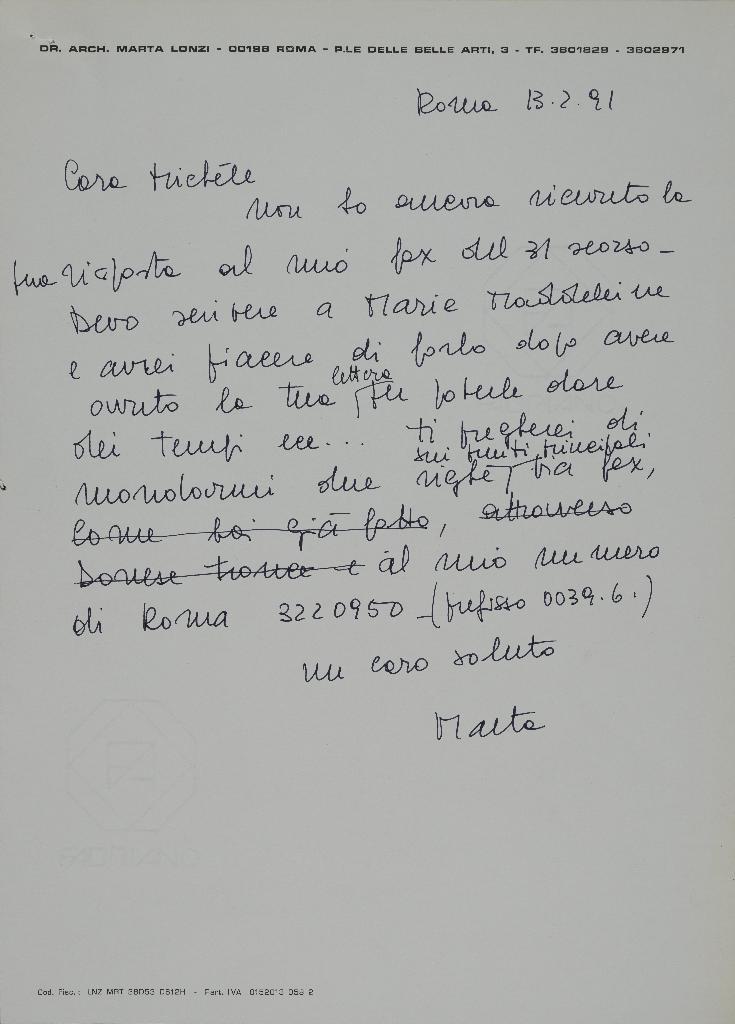 DR. ARCH. MARTA LONZI - 00198 ROMA - P.LE DELLE BELLE ARTI, 3 - TF. 3601829 - 3602971
Roma 13.2.91
Cara Michèle
Non ho ancora ricevuto la
tua risposta al mio fax del 31 scorso -
Devo scrivere a Marie Maddeleine
e avrei piacere di farlo dopo avere
avuto la tua lettera per poterle dare
dei tempi ecc... ti pregherei di
mandarmi due righe sui punti principali via fax,
come hai già fatto, attraverso
e al mio numero
di Roma 3220950 - (prefisso 0039.6.)
un caro saluto
Marta
Cod. Fisc.: LNZ MRT 38D53 D612H - Part. IVA